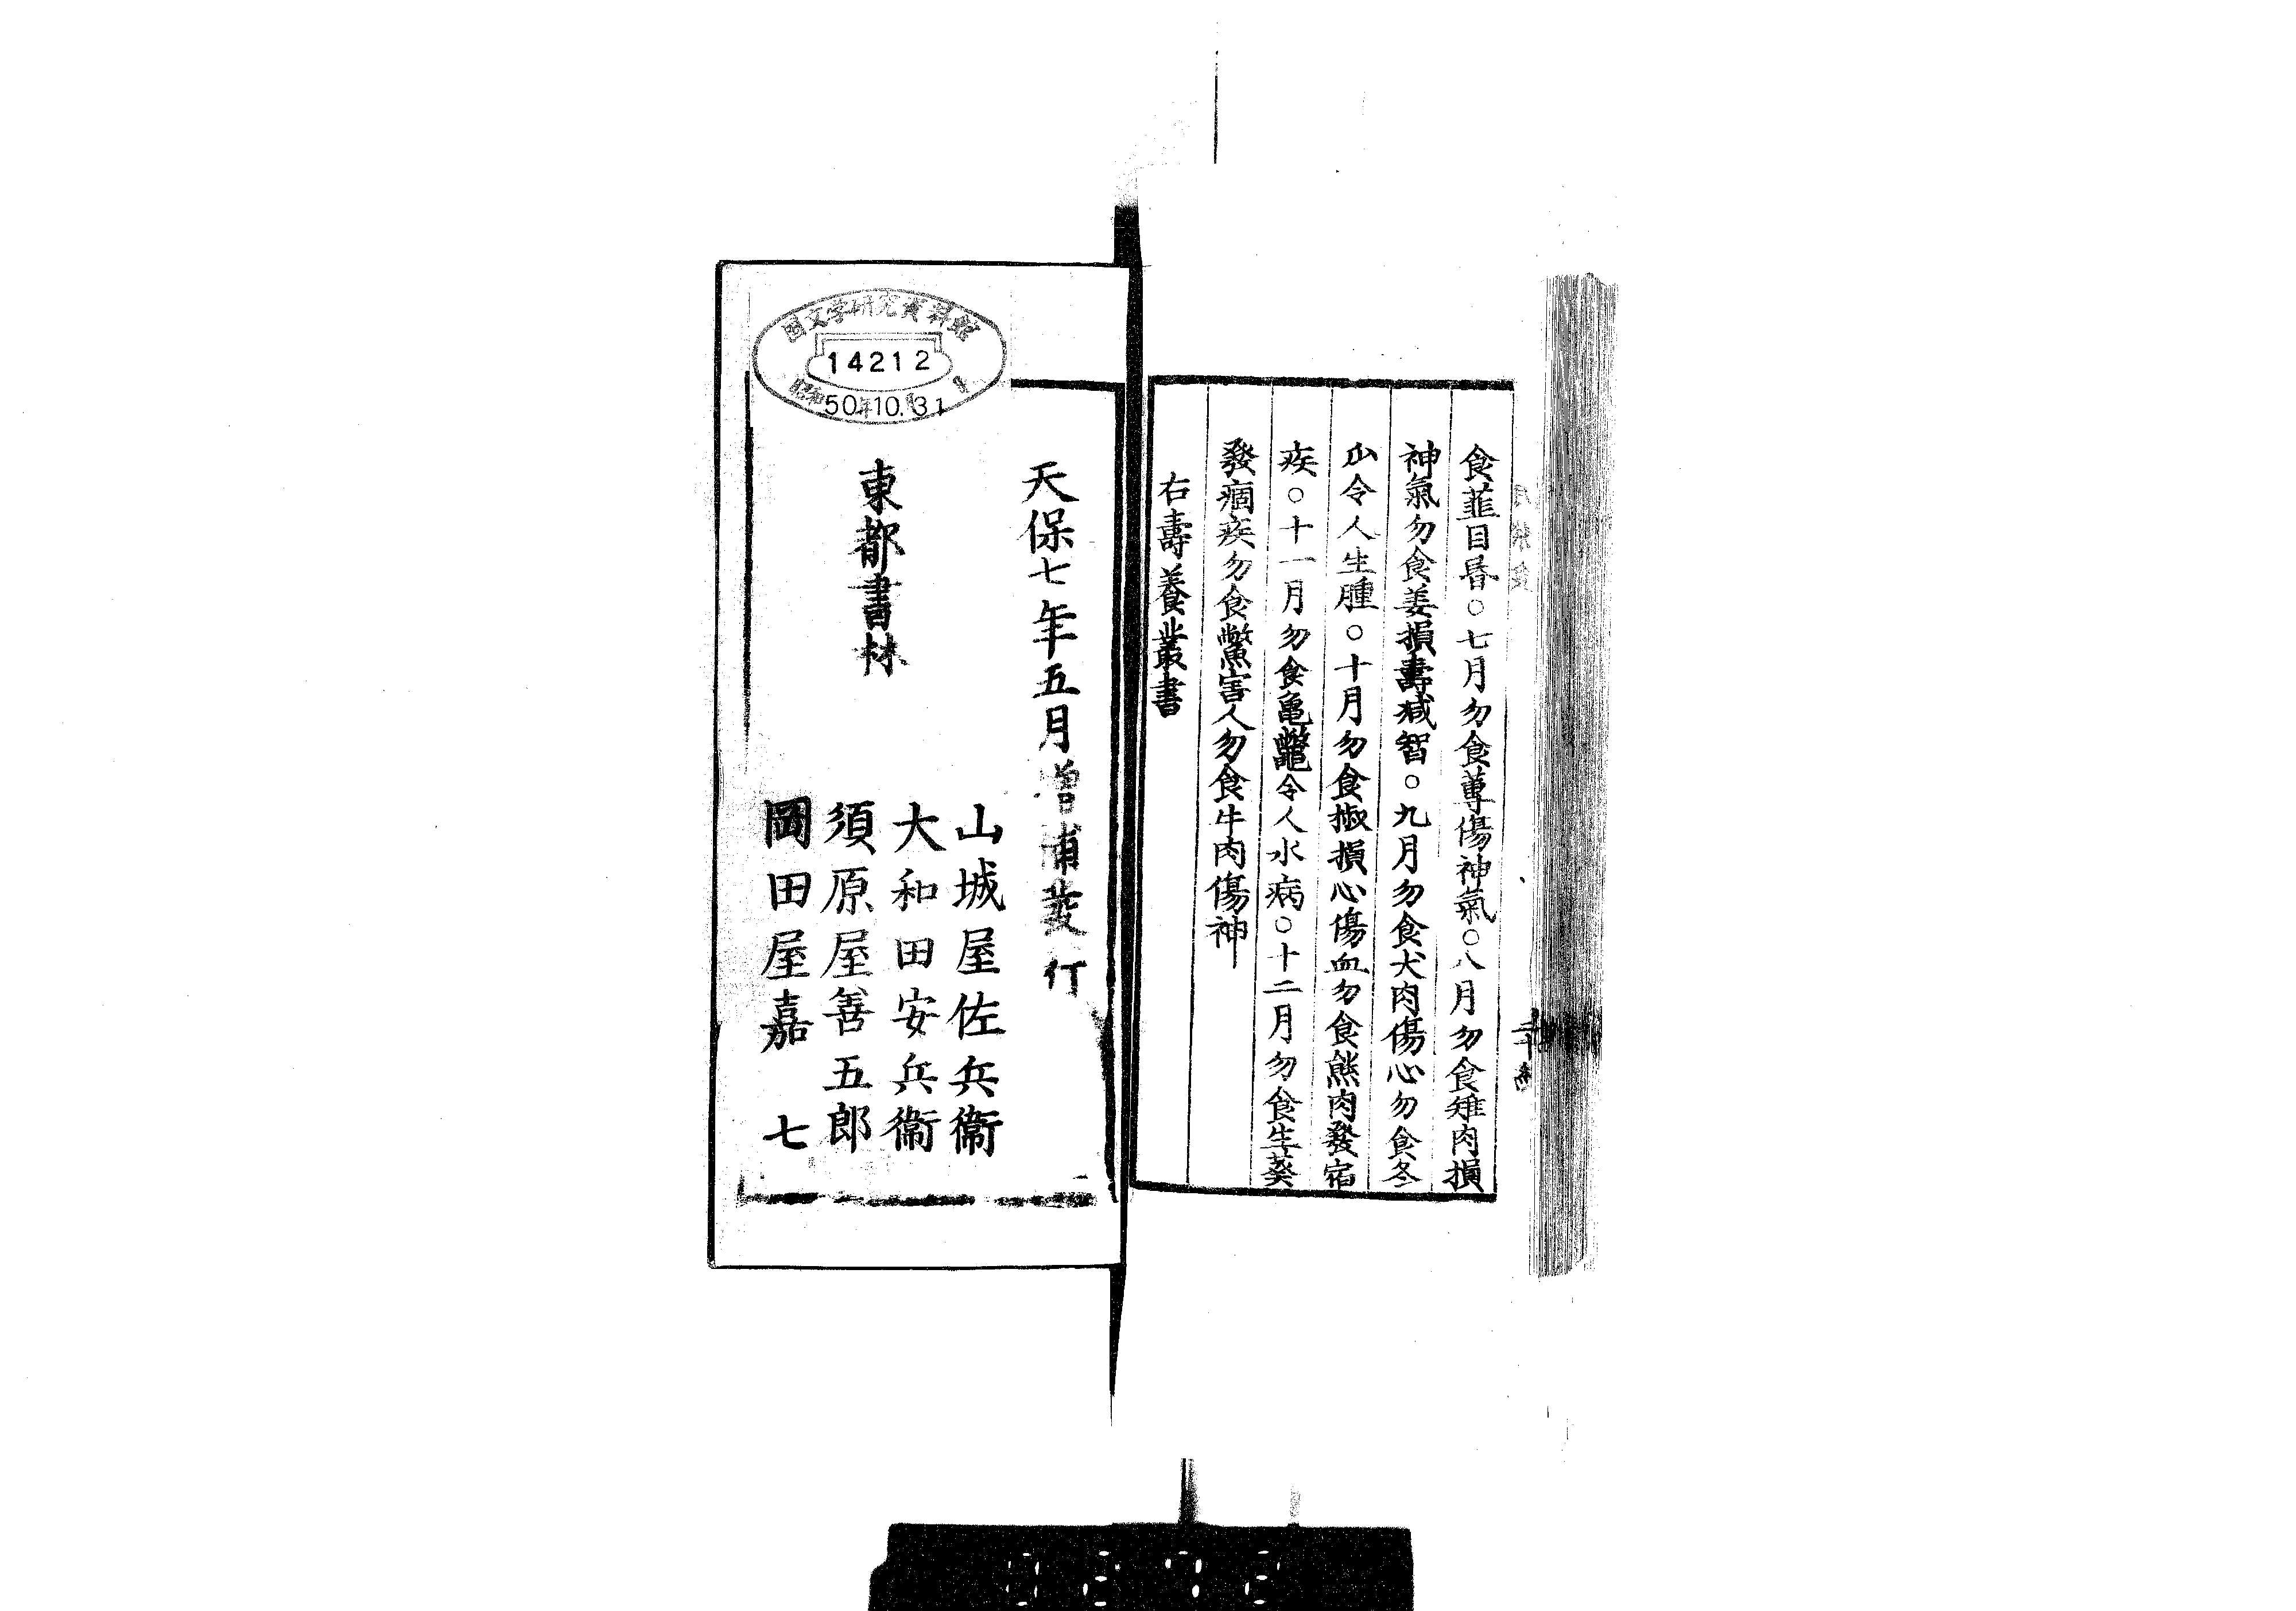 食韮目昬○七月勿食蓴傷神氣○八月勿食雉肉損
神氣勿食姜損壽減智○九月勿食犬肉傷心勿食冬
瓜令人生腫○十月勿食椒損心傷血勿食熊肉發宿
疾○十一月勿食亀鼈令人水病○十二月勿食生葵
發痼疾勿食鱉害人勿食牛肉傷神
右壽養叢書
天保七年五月增補發行
東都書林
山城屋佐兵衞
大和田安兵衞
須原屋善五郎
岡田屋嘉七
国文学研究資料館
14212
昭和50年10月31日